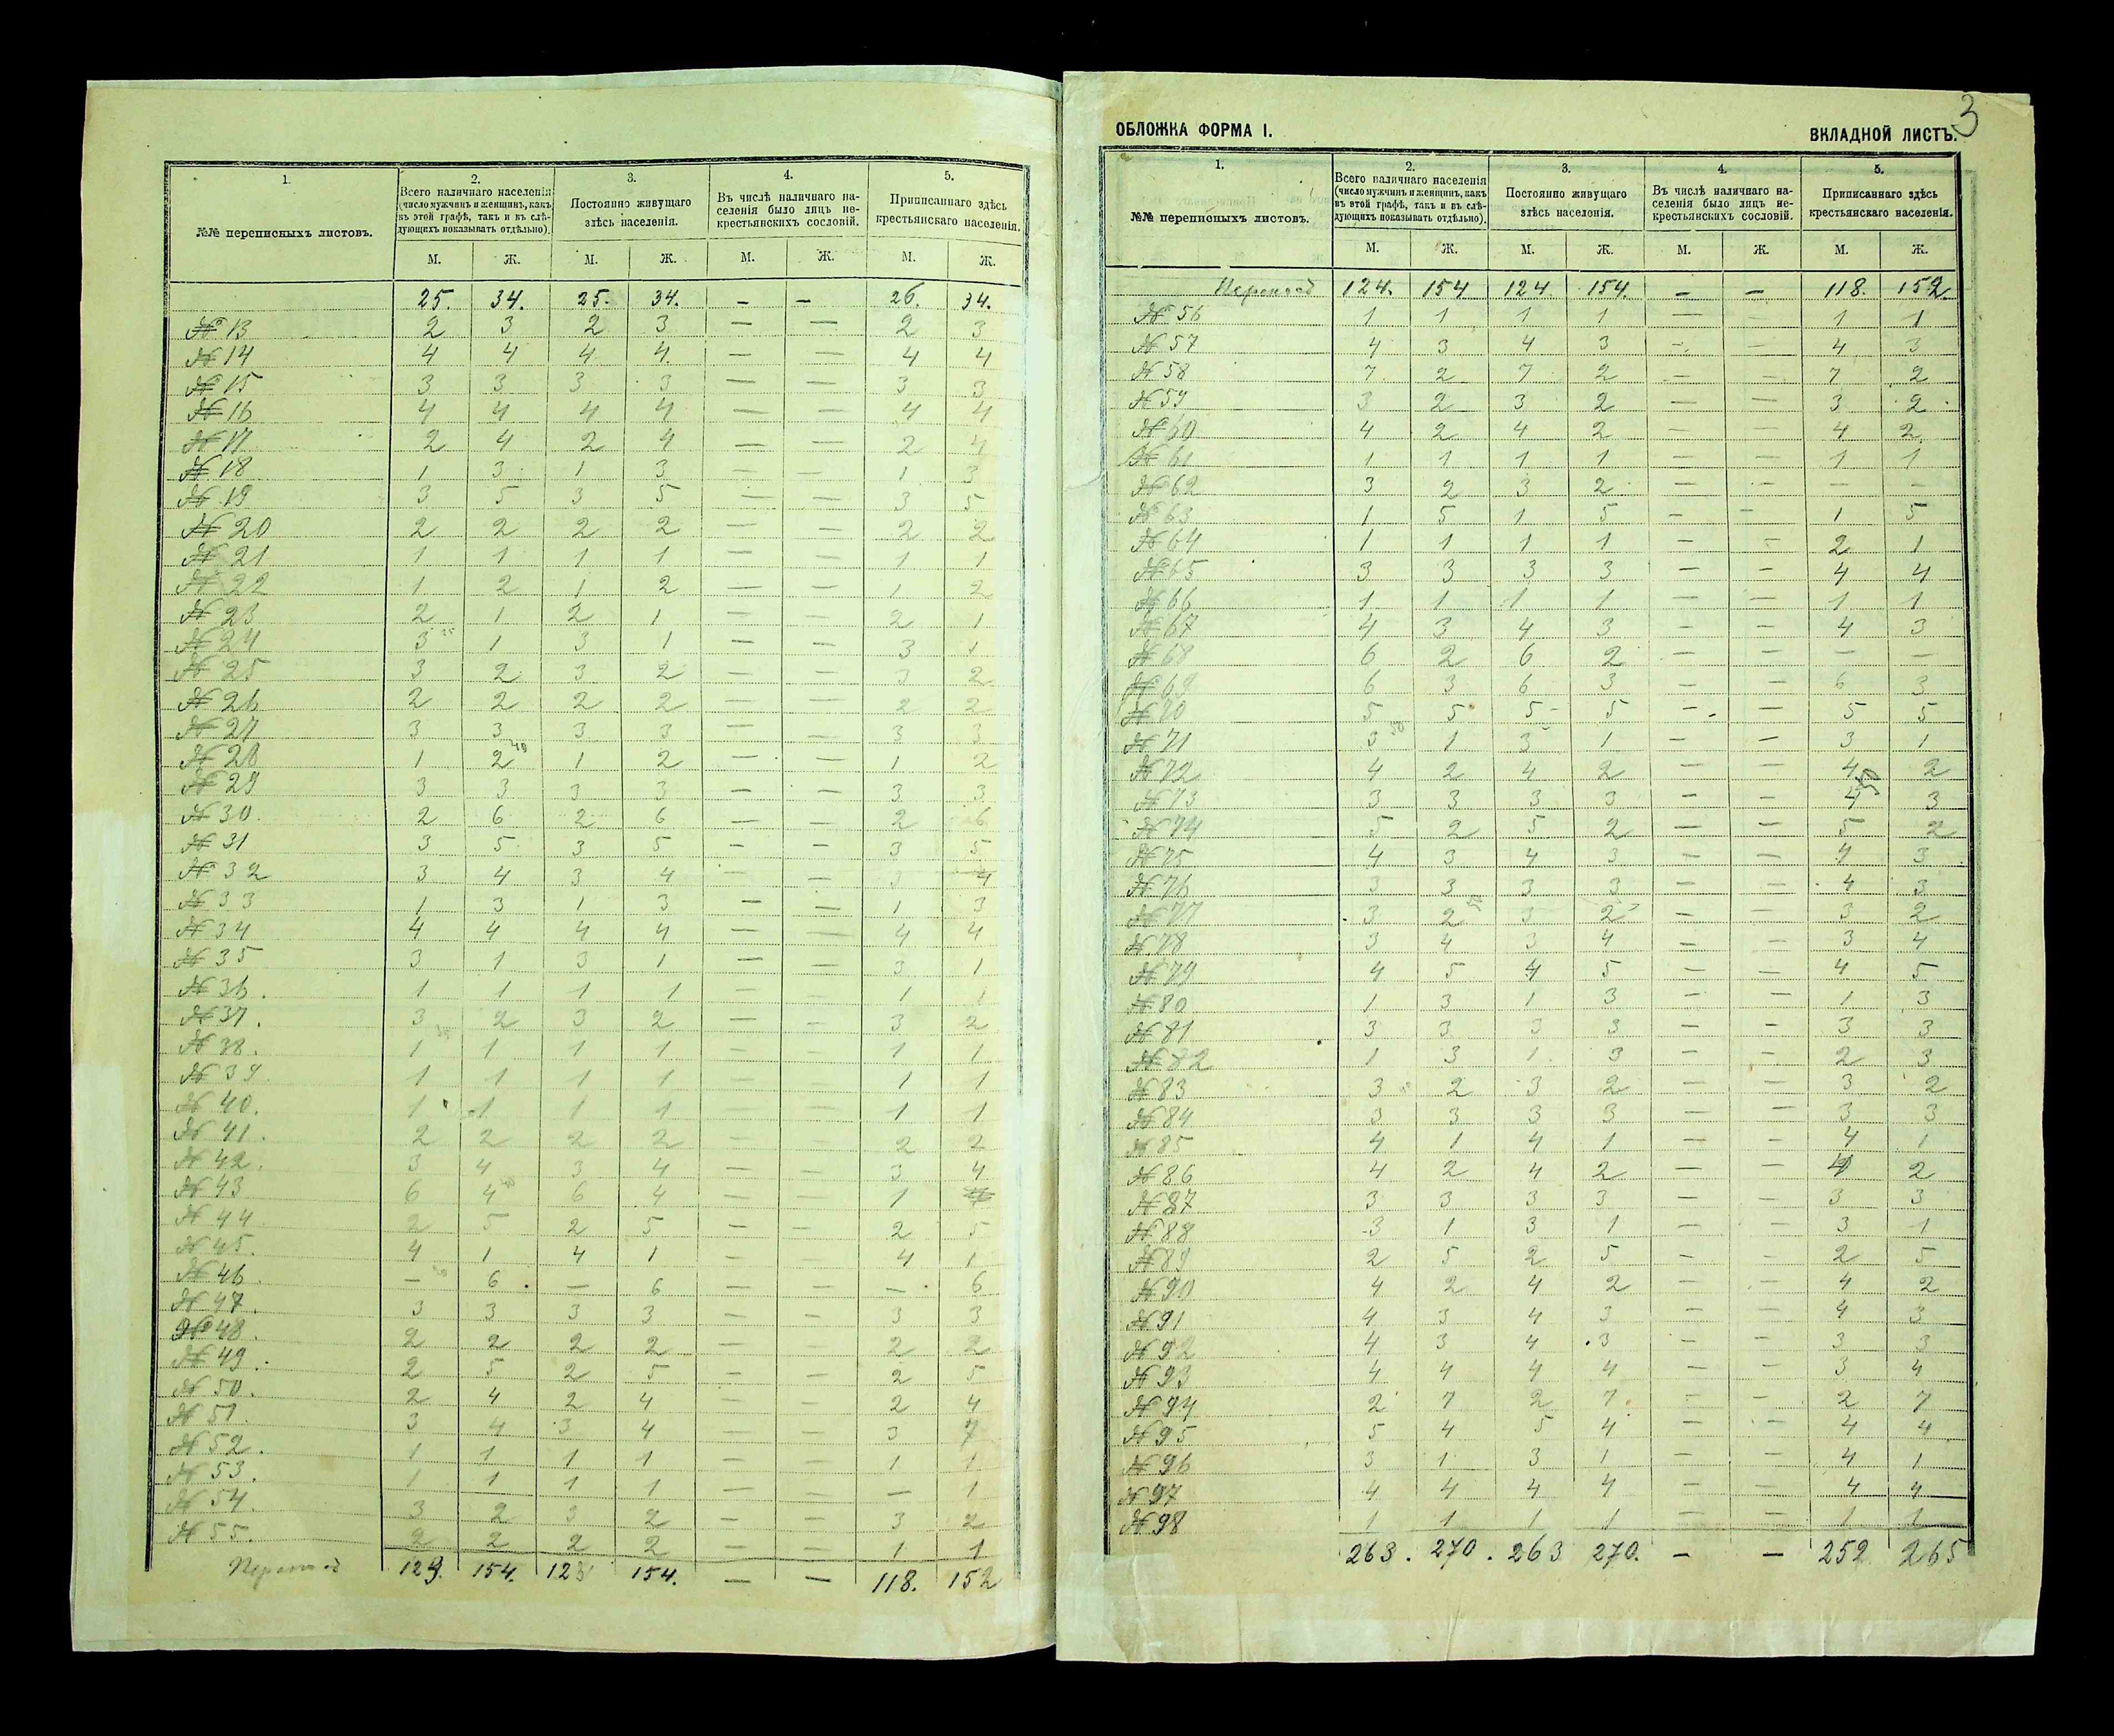 1. 2. 3. 4. 5.
№№ переписныхъ листовъ.
Всего наличнаго населенія (число мужчинъ и женщинъ, какъ въ этой графѣ, такъ и въ слѣдующихъ показывать отдѣльно).
Постоянно живущаго здѣсь населенія.
Въ числѣ наличнаго населенія было лицъ некрестьянскихъ сословій.
Приписаннаго здѣсь крестьянскаго населенія.
М. Ж. М. Ж. М. Ж. М. Ж.
25. 34. 25. 34. — — 26. 34.
№ 13 2 3 2 3 — — 2 3
№ 14 4 4 4 4 — — 4 4
№ 15 3 3 3 3 — — 3 3
№ 16 4 4 4 4 — — 4 4
№ 17 2 4 2 4 — — 2 4
№ 18 1 3 1 3 — — 1 3
№ 19 3 5 3 5 — — 3 5
№ 20 2 2 2 2 — — 2 2
№ 21 1 1 1 1 — — 1 1
№ 22 1 2 1 2 — — 1 2
№ 23 2 1 2 1 — — 2 1
№ 24 3 1 3 1 — — 3 1
№ 25 3 2 3 2 — — 3 2
№ 26 2 2 2 2 — — 2 2
№ 27 3 3 3 3 — — 3 3
№ 28 1 2 1 2 — — 1 2
№ 29 3 3 3 3 — — 3 3
№ 30. 2 6 2 6 — — 2 6
№ 31 3 5 3 5 — — 3 5
№ 32 3 4 3 4 — — 3 4
№ 33 1 3 1 3 — — 1 3
№ 34 4 4 4 4 — — 4 4
№ 35 3 1 3 1 — — 3 1
№ 36. 1 1 1 1 — — 1 1
№ 37. 3 2 3 2 — — 3 2
№ 38. 1 1 1 1 — — 1 1
№ 39. 1 1 1 1 — — 1 1
№ 40. 1 1 1 1 — — 1 1
№ 41. 2 2 2 2 — — 2 2
№ 42. 3 4 3 4 — — 3 4
№ 43 6 4 6 4 — — 1
№ 44. 2 5 2 5 — — 2 5
№ 45. 4 1 4 1 — — 4 1
№ 46. — 6 — 6 — — — 6
№ 47. 3 3 3 3 — — 3 3
№ 48. 2 2 2 2 — — 2 2
№ 49. 2 5 2 5 — — 2 5
№ 50. 2 4 2 4 — — 2 4
№ 51. 3 4 3 4 — — 3 7
№ 52. 1 1 1 1 — — 1 1
№ 53. 1 1 1 1 — — — 1
№ 54. 3 2 3 2 — — 3 2
№ 55. 2 2 2 2 — — 1 1
Переход 123. 154. 123 154. — — 118. 152
3
ОБЛОЖКА ФОРМА I. ВКЛАДНОЙ ЛИСТЪ.
1. 2. 3. 4. 5.
№№ переписныхъ листовъ.
Всего наличнаго населенія (число мужчинъ и женщинъ, какъ въ этой графѣ, такъ и въ слѣдующихъ показывать отдѣльно).
Постоянно живущаго здѣсь населенія.
Въ числѣ наличнаго населенія было лицъ некрестьянскихъ сословій.
Приписаннаго здѣсь крестьянскаго населенія.
М. Ж. М. Ж. М. Ж. М. Ж.
Переход 124. 154 124 154. — — 118. 152.
№ 56 1 1 1 1 — — 1 1
№ 57 4 3 4 3 — — 4 3
№ 58 7 2 7 2 — — 7 2
№ 59 3 2 3 2 — — 3 2
№ 60 4 2 4 2 — — 4 2
№ 61 1 1 1 1 — — 1 1
№ 62 3 2 3 2 — — — —
№ 63 1 5 1 5 — — 1 5
№ 64 1 1 1 1 — — 2 1
№ 65 3 3 3 3 — — 4 4
№ 66 1 1 1 1 — — 1 1
№ 67 4 3 4 3 — — 4 3
№ 68 6 2 6 2 — — — —
№ 69 6 3 6 3 — — 6 3
№ 70 5 5 5 5 — — 5 5
№ 71 3 1 3 1 — — 3 1
№ 72 4 2 4 2 — — 4 2
№ 73 3 3 3 3 — — 4 3
№ 74 5 2 5 2 — — 5 2
№ 75 4 3 4 3 — — 4 3
№ 76 3 3 3 3 — — 4 3
№ 77 3 2 3 2 — — 3 2
№ 78 3 4 3 4 — — 3 4
№ 79 4 5 4 5 — — 4 5
№ 80 1 3 1 3 — — 1 3
№ 81 3 3 3 3 — — 3 3
№ 82 1 3 1 3 — — 2 3
№ 83 3 2 3 2 — — 3 2
№ 84 3 3 3 3 — — 3 3
№ 85 4 1 4 1 — — 4 1
№ 86 4 2 4 2 — — 4 2
№ 87 3 3 3 3 — — 3 3
№ 88 3 1 3 1 — — 3 1
№ 89 2 5 2 5 — — 2 5
№ 90 4 2 4 2 — — 4 2
№ 91 4 3 4 3 — — 4 3
№ 92 4 3 4 3 — — 3 3
№ 93 4 4 4 4 — — 3 4
№ 94 2 7 2 7 — — 2 7
№ 95 5 4 5 4 — — 4 4
№ 96 3 1 3 1 — — 4 1
№ 97 4 4 4 4 — — 4 4
№ 98 1 1 1 1 — — 1 1
263. 270. 263 270. — — 252 265